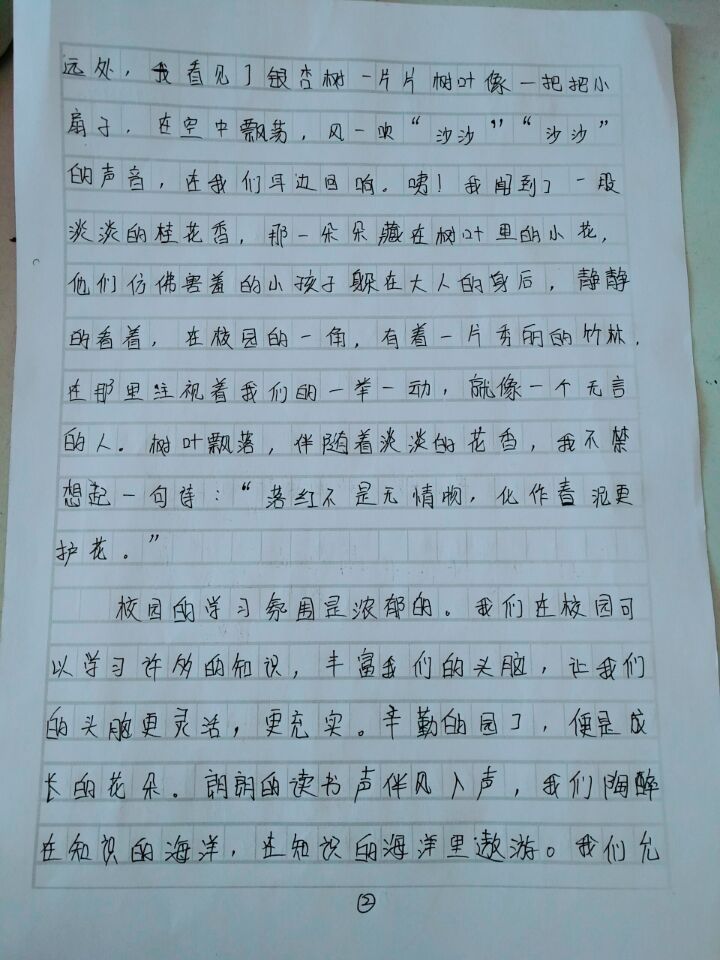 远处，我看见了银杏树一片片树叶像一把把小
扇子，在空中飘荡，风一吹“沙沙”“沙沙”
的声音，在我们耳边回响。咦！我闻到了一股
淡淡的桂花香，那一朵朵藏在树叶里的小花，
他们仿佛害羞的小孩子躲在大人的身后，静静
的看着，在校园的一角，有着一片秀丽的竹林，
在那里注视着我们的一举一动，就像一个无言
的人。树叶飘落，伴随着淡淡的花香，我不禁
想起一句诗：“落红不是无情物，化作春泥更
护花。”
校园的学习氛围是浓郁的。我们在校园可
以学习许多的知识，丰富我们的头脑，让我们
的头脑更灵活，更充实。辛勤的园丁，便是成
长的花朵。朗朗的读书声伴风入声，我们陶醉
在知识的海洋，在知识的海洋里遨游。我们允
②